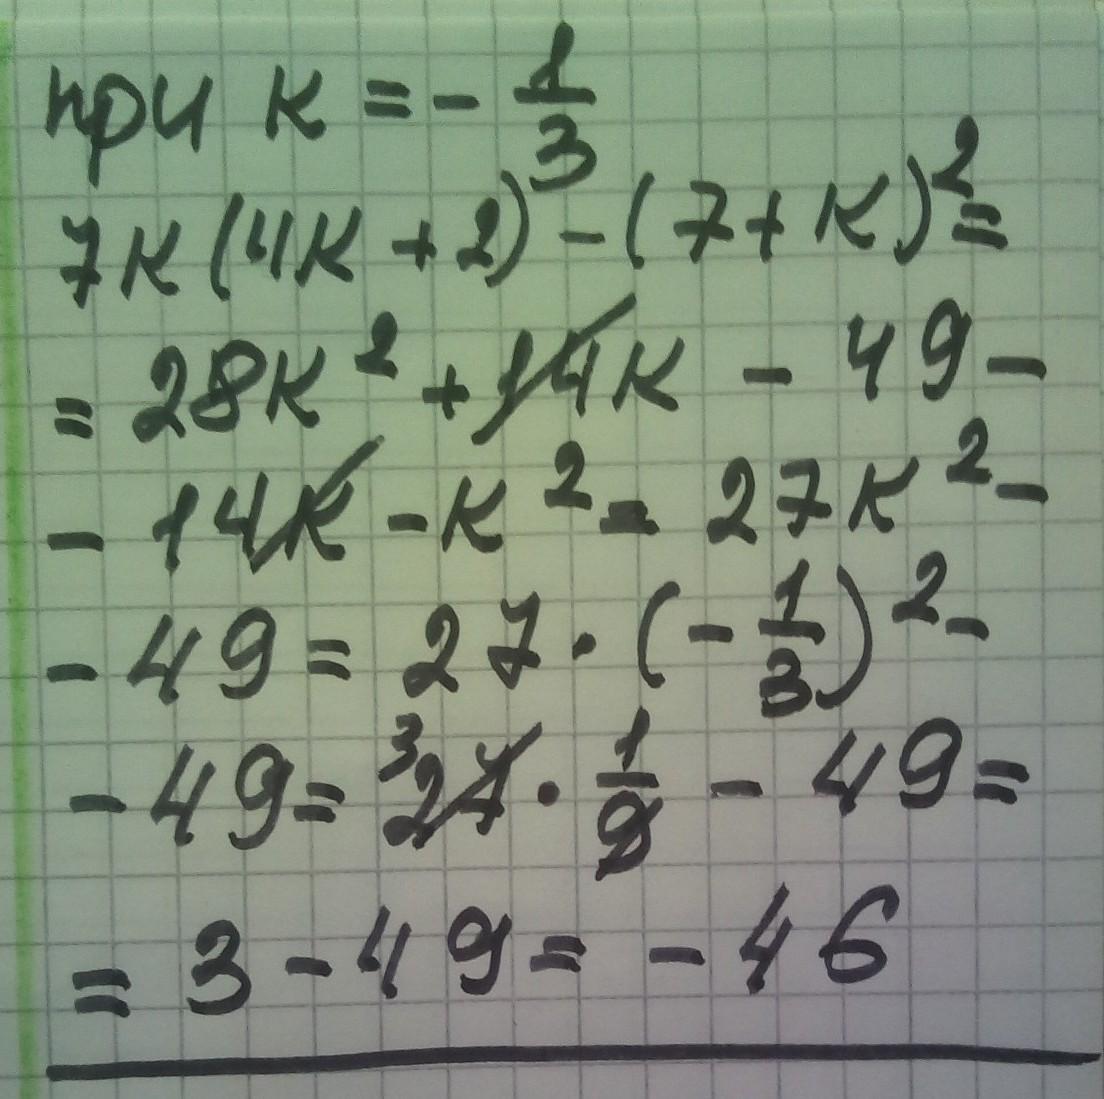 при к = - 1/3
7к(4к + 2) - (7 + к)² =
= 28к² + 14к - 49 -
- 14к - к² = 27к² -
- 49 = 27 · (- 1/3)² -
- 49 = ³27 · 1/9 - 49 =
= 3 - 49 = - 46